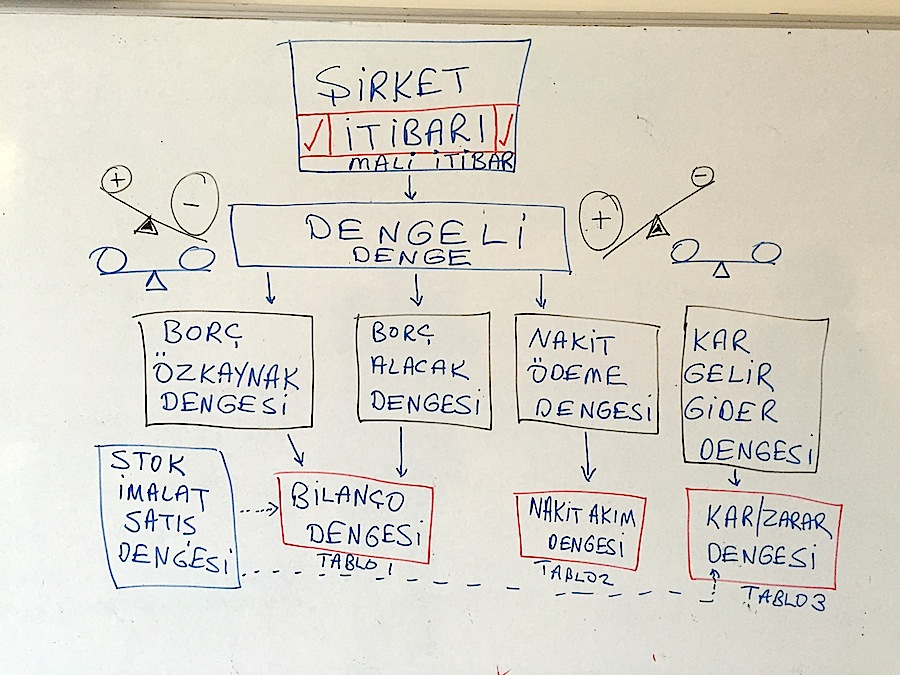 ŞİRKET
İTİBARI
MALİ İTİBAR
+
-
DENGELİ
DENGE
+
-
BORÇ
ÖZKAYNAK
DENGESİ
BORÇ
ALACAK
DENGESİ
NAKİT
ÖDEME
DENGESİ
KAR
GELİR
GİDER
DENGESİ
STOK
İMALAT
SATIŞ
DENGESİ
BİLANÇO
DENGESİ
TABLO 1
NAKİT AKIM
DENGESİ
TABLO 2
KAR/ZARAR
DENGESİ
TABLO 3